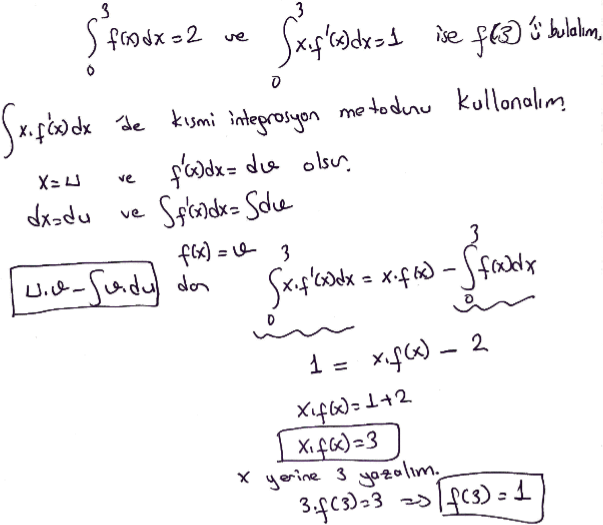 ∫₀³ f(x)dx = 2 ve ∫₀³ x.f'(x)dx = 1 ise f(3)'ü bulalım.
∫x.f'(x)dx 'de kısmi integrasyon metodunu kullanalım.
x=u ve f'(x)dx = dv olsun.
dx=du ve ∫f'(x)dx = ∫dv
f(x) = v
u.v - ∫v.du dan ∫₀³ x.f'(x)dx = x.f(x) - ∫₀³ f(x)dx
1 = x.f(x) - 2
x.f(x) = 1+2
x.f(x) = 3
x yerine 3 yazalım.
3.f(3)=3 => f(3) = 1